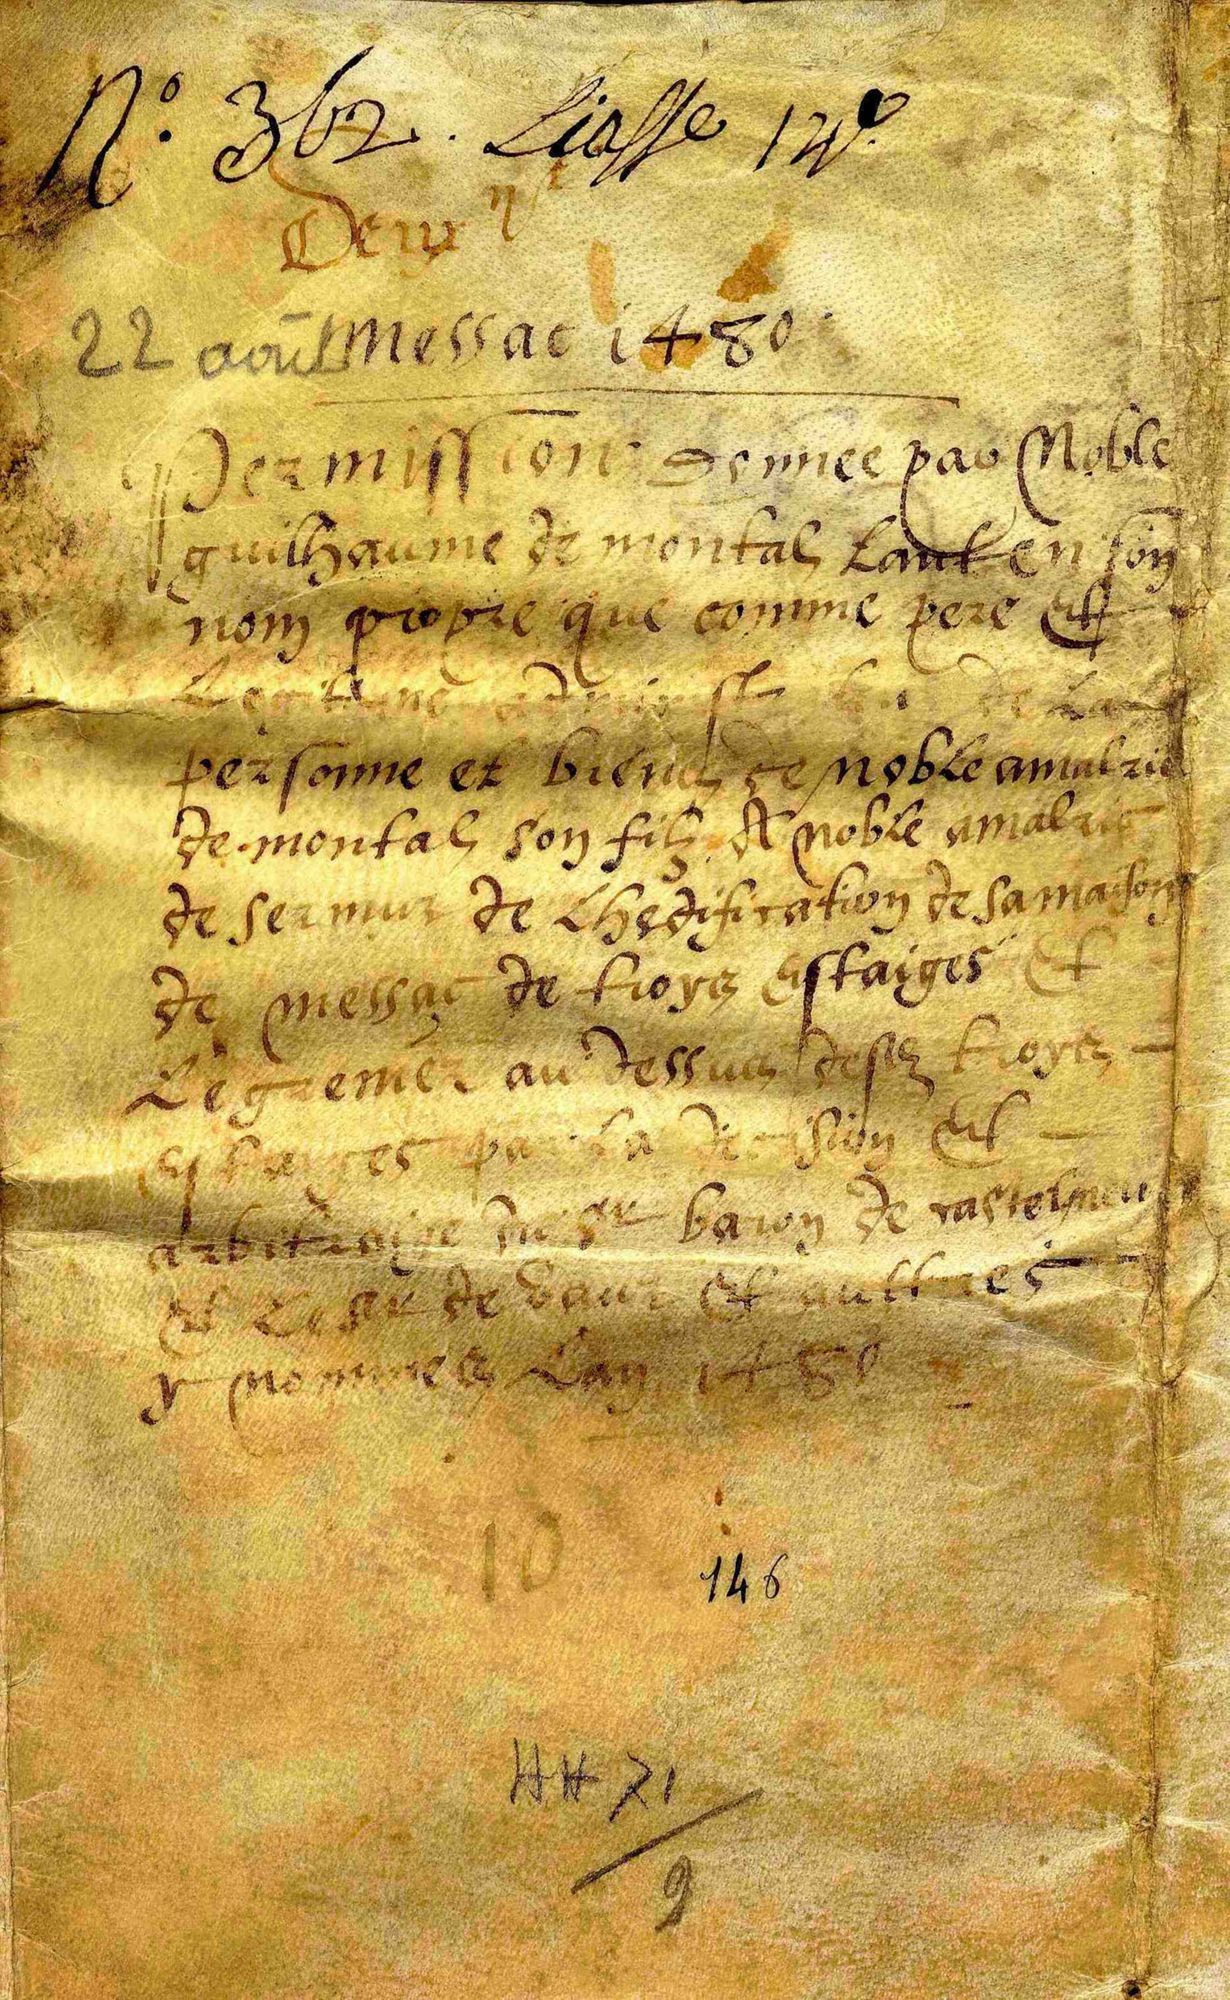 N.º 362. Liasse 14e.
Deux
22 août Messac 1480
Permission donnee par Noble
guilhaume de montal tant en son
nom propre que comme pere et
Legitime de La
personne et biens de noble amalric
de montal son filz A noble amalric
de sermur de Lhedification de sa maison
de messac de troys estaiges et
Le grenier au dessus desd troys
estaiges par la decision et
arbitraige du sr baron de castelnau
et Le sr de vaur et aultres
y nommes Lan 1480
10
146
HH 71
9